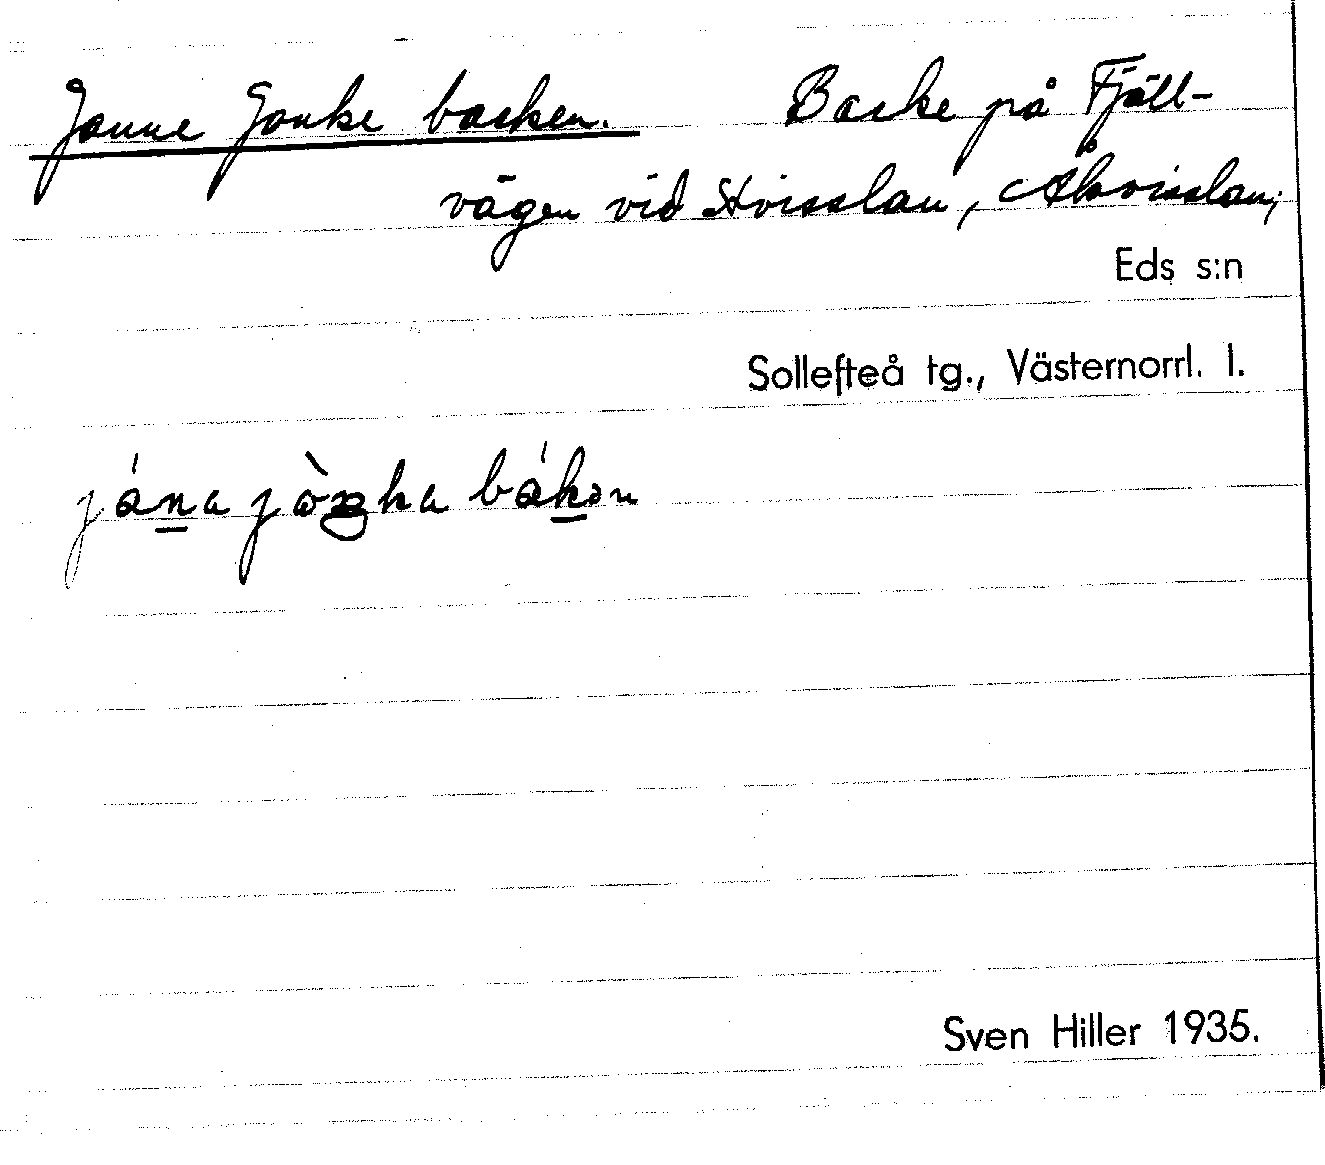 Janne Jonke backen. Backe på Fjäll-
vägen vid Hvisslan, Åkvisslan,
Eds s:n
Sollefteå tg., Västernorrl. l.
jána jòŋka bákən
Sven Hiller 1935.